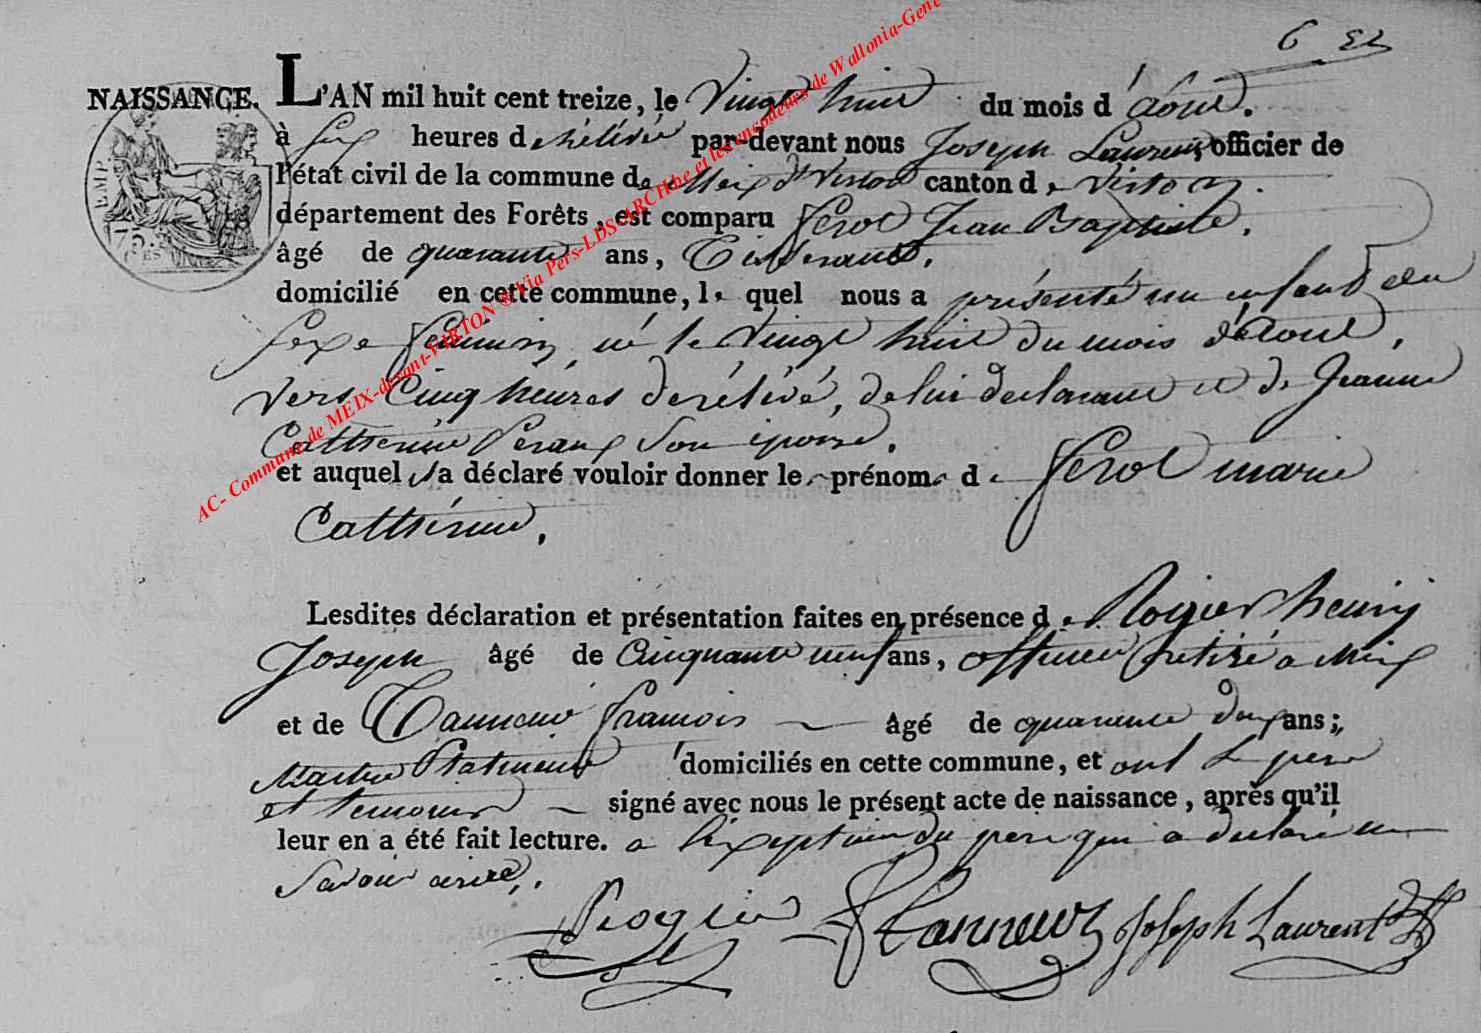 6 
NAISSANCE. L'AN mil huit cent treize, le Vingt huit du mois d'aout.
à six heures de rélévé par-devant nous Joseph Laurent, officier de
l'état civil de la commune de Meix dt Virton canton de Virton.
département des Forêts, est comparu Jean Baptiste,
âgé de quarante ans,
domicilié en cette commune, le quel nous a présenté un enfant du
sexe feminin, né le Vingt huit du mois d'aout,
vers Cinq heures de rélévé, de lui declarant et de Jeanne
Catherine son epouse,
et auquel il a déclaré vouloir donner le prénom de marie
Catherine,
Lesdites déclaration et présentation faites en présence de Rogier henry
Joseph âgé de Cinquante neuf ans, officier retiré a Meix
et de Tanneur françois âgé de quarante deux ans ;
domiciliés en cette commune, et ont le pere
et temoins signé avec nous le présent acte de naissance, après qu'il
leur en a été fait lecture. a l'exception du pere qui a declaré ne
savoir ecrire.
Rogier Tanneur Joseph Laurent
EMP.
75.
CES
AC- Commune de MEIX-devant-VIRTON ® Via Pers-LDS-ARCH.be et les encodeurs de Wallonia-Gene